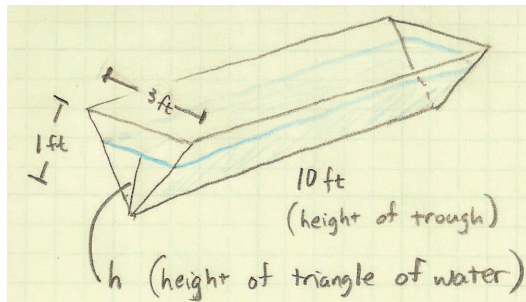 3 ft
1 ft
10 ft
(height of trough)
h (height of triangle of water)